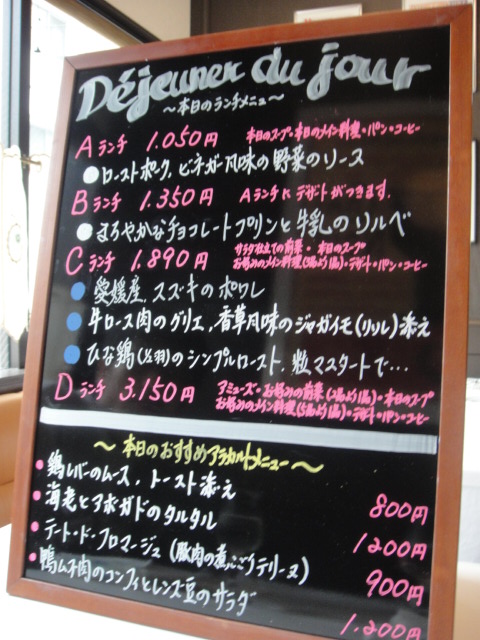 Déjeuner du jour
〜本日のランチメニュー〜
Aランチ 1.050円 本日のスープ・本日のメイン料理・パン・コーヒー
ローストポーク、ビネガー風味の野菜のソース
Bランチ 1.350円 Aランチに デザートがつきます。
まろやかなチョコレートプリンと牛乳のソルベ
Cランチ 1.890円 サラダ仕立ての前菜・本日のスープ
お好みのメイン料理(3品より1品)・デザート・パン・コーヒー
愛媛産、スズキのポワレ
牛ロース肉のグリエ、香草風味のジャガイモ(リソレ)添え
ひな鶏(半羽)のシンプルロースト、粒マスタードで…
Dランチ 3.150円 アミューズ・お好みの前菜(2品より1品)・本日のスープ
お好みのメイン料理(5品より1品)・デザート・パン・コーヒー
〜本日のおすすめアラカルトメニュー〜
鶏レバーのムース、トースト添え 800円
海老とアボガドのタルタル 1200円
テート・ド・フロマージュ(豚肉の煮こごりテリーヌ) 900円
鴨ムネ肉のコンフィとレンズ豆のサラダ 1.200円